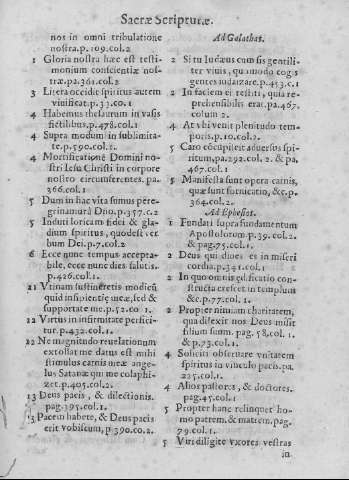 Sacræ Scripturæ.
nos in omni tribulatione
nostra. p. 109. col. 2
1 Gloria nostra hæc est testi-
monium conscientiæ nos-
træ. pa. 361. col. 2
3 Litera occidit spiritus autem
vivificat. p. 33. co. 1
4 Habemus thesaurum in vasis
fictilibus. p. 478. col. 1
4 Supra modum in sublimita-
te. p. 590. col. 1.
4 Mortificationē Domini no-
stri Iesu Christi in corpore
nostro circumferentes. pa.
366. col. 1
5 Dum in hac vita sumus pere-
grinamurà Dño. p. 357. c. 2
5 Induti loricam fidei & gla-
dium spiritus, quodest ver-
bum Dei. p. 7. col. 2
6 Ecce nunc tempus accepta-
bile, ecce nunc dies salutis.
p. 426. col. 1.
21 Vtinam sustineretis modicū
quid insipientię meæ, sed &
supportate me. p. 52. co. 1.
12 Virtus in infirmitate perfici-
tur. p. 432. col. 1.
22 Ne magnitudo reuelationum
extollat me datus est mihi
stimulus carnis meæ ange-
lus Satanæ qui me colaphi-
zet. p. 405. col. 2.
13 Deus pacis, & dilectionis.
pag. 395. col. 1.
13 Pacem habete, & Deus pacis
erit vobiscum. p. 390. co. 2.
Ad Galathas.
2 Si tu Iudæus cum sis gentili-
ter viuis, quomodo cogis
gentes iudaizare. p. 453. c. 1
2 In faciem ei restiti, quia re-
prehensibilis erat. pa. 467.
colum. 2
4 At vbi venit plenitudo tem-
poris. p. 10. col. 2.
5 Caro cōcupiscit aduersus spi-
ritum, pa. 292. col. 2. & pa.
467. col. 1
5 Manifesta sunt opera carnis,
quæ sunt fornicatio, &c. p.
364. col. 2.
Ad Ephesios.
1 Fundati supra fundamentum
Apostolorum. p. 39. col. 2.
& pag. 75. col. 1.
2 Deus qui diues es in miseri
cordia. p. 341. col. 1
2 In quo omnis ędificatio con-
structa crescit in templum
&c. p. 77. col. 1.
2 Propter nimiam charitatem,
qua dilexit nos Deus misit
filium suum. pag. 58. col. 1.
& p. 73. col. 1.
4 Soliciti obseruare vnitatem
spiritus in vinculo pacis. pa.
225. col. 1.
4 Alios pastores, & doctores.
pag. 45. col. 1
5 Propter hanc relinquet ho-
mo patrem, & matrem. pag.
79. col. 1.
5 Viri diligite vxores vestras
in